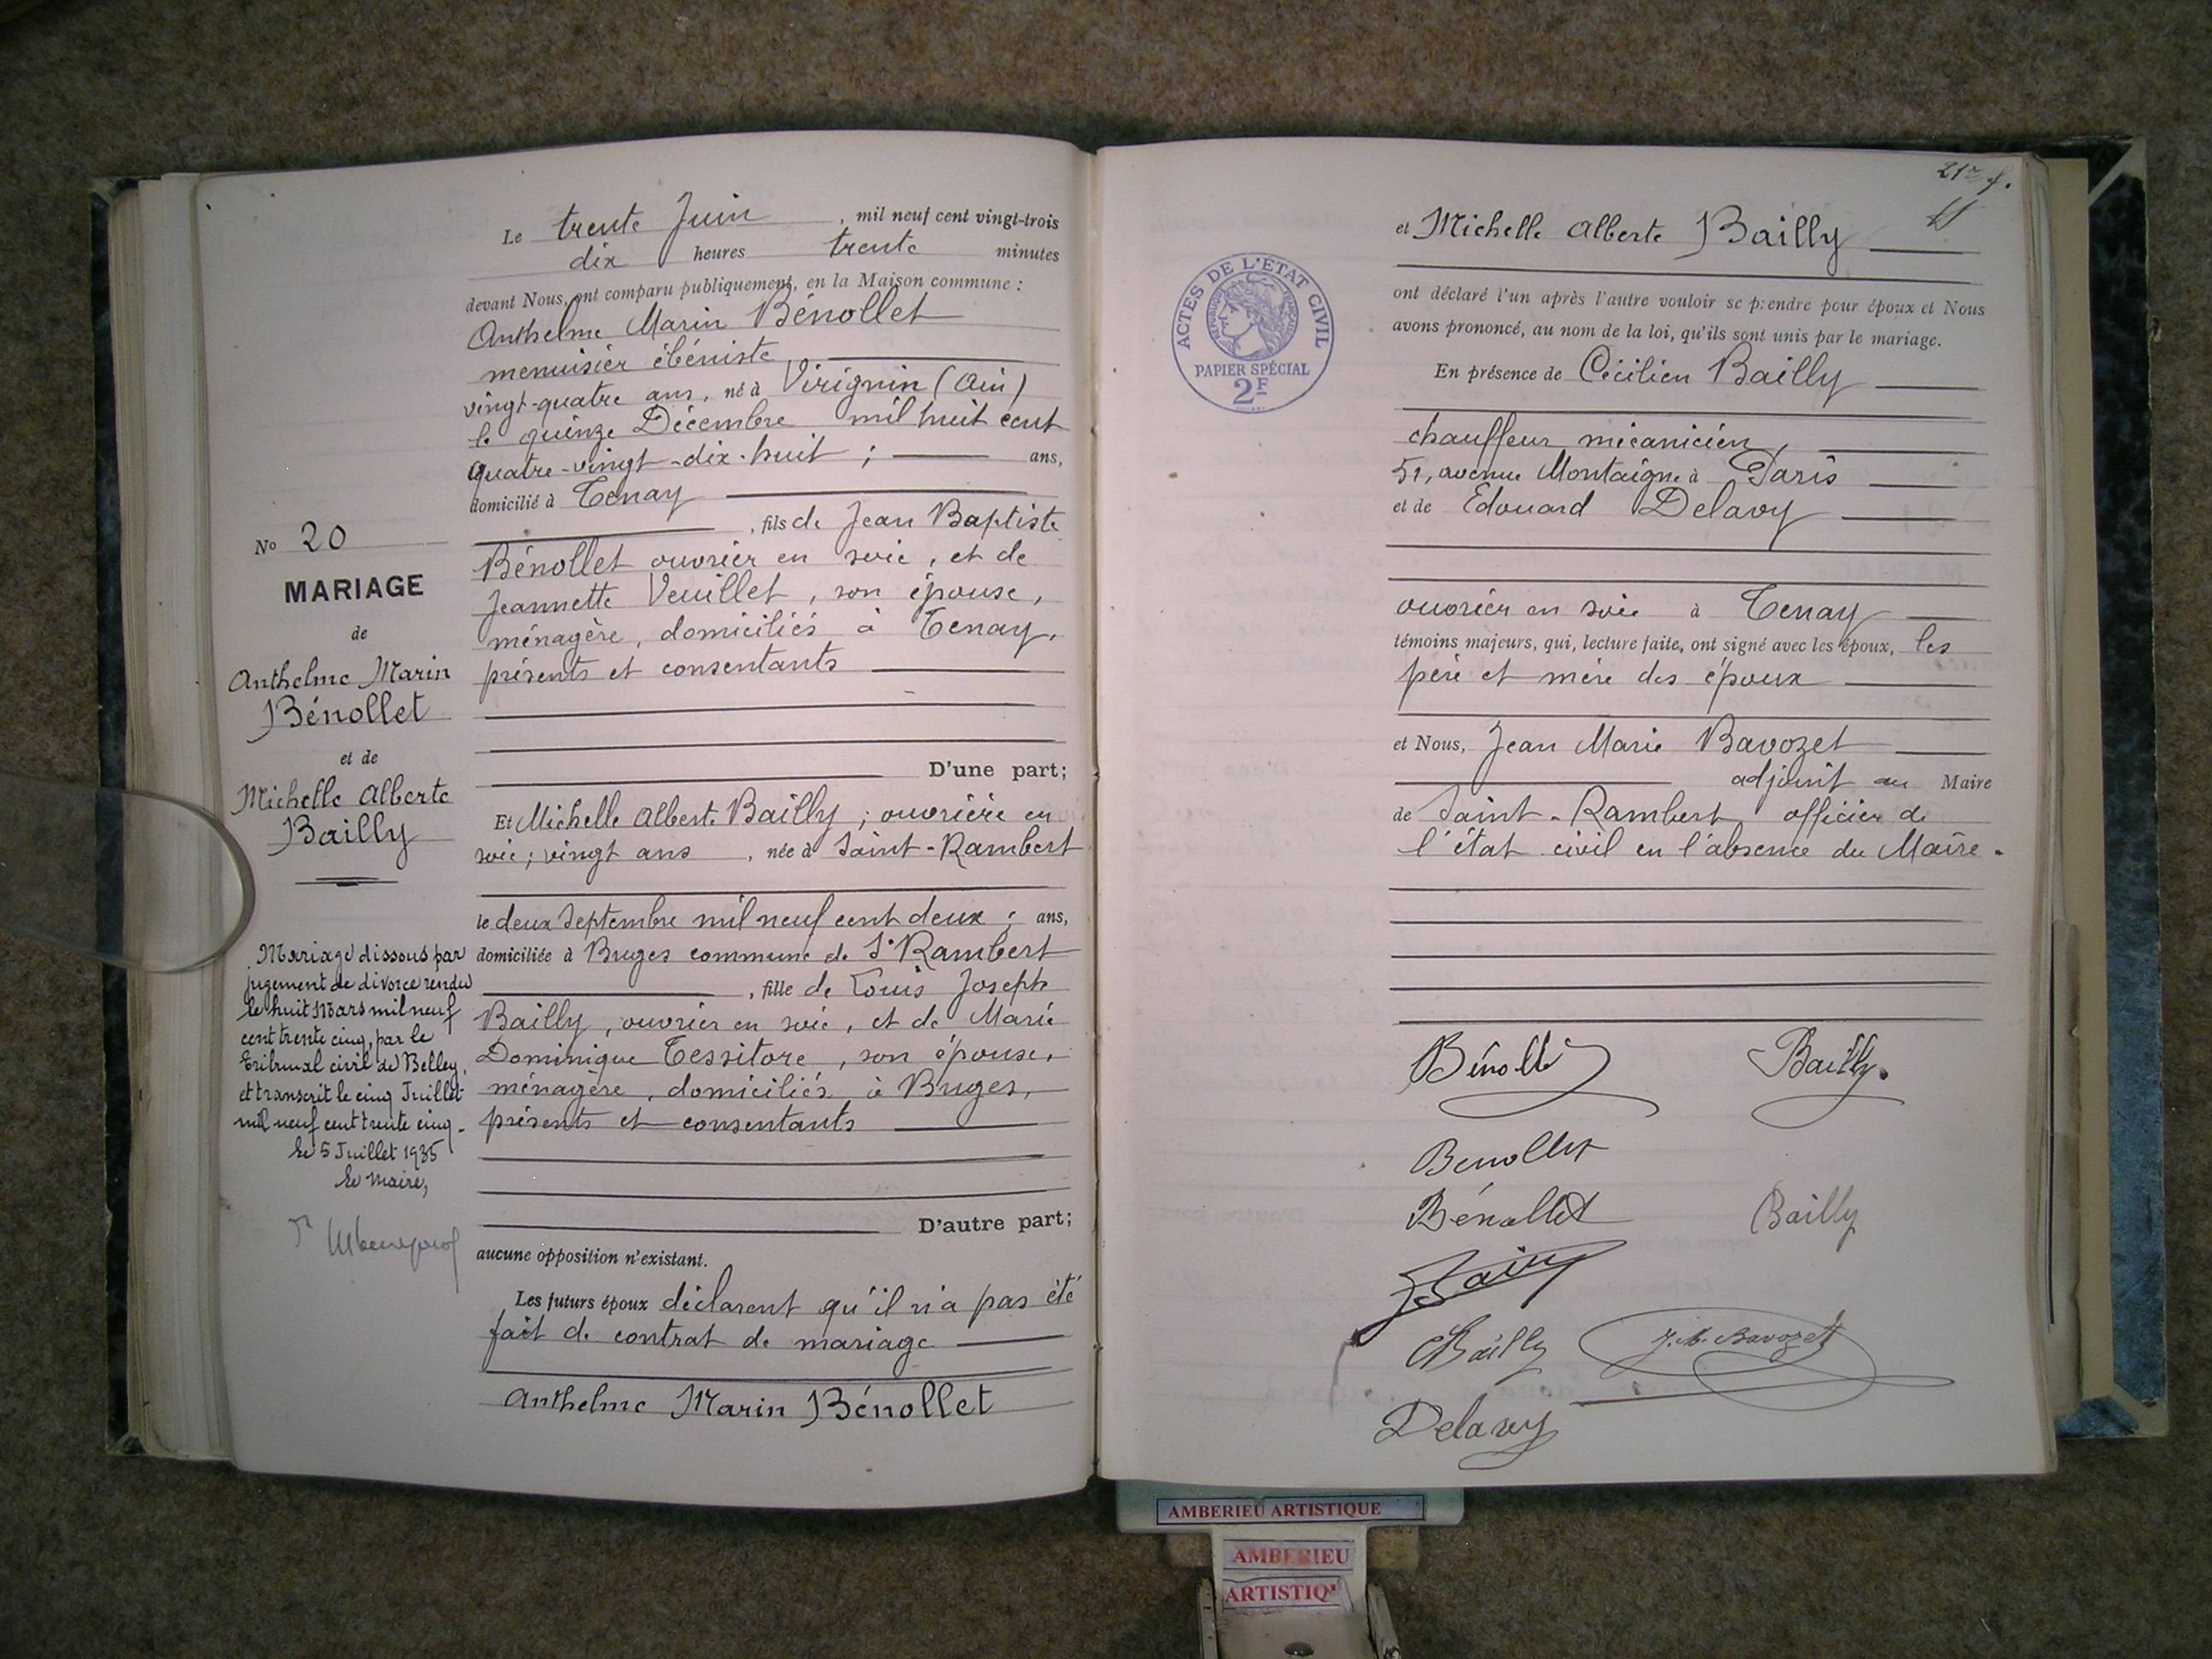 Le trente Juin, mil neuf cent vingt-trois
dix heures trente minutes
devant Nous, ont comparu publiquement, en la Maison commune :
Anthelme Marin Bénollet
menuisier ébéniste,
vingt-quatre ans, né à Virignin (Ain)
le quinze Décembre mil huit cent
quatre-vingt-dix-huit ; ans,
domicilié à Tenay
, fils de Jean Baptiste
Bénollet ouvrier en soie, et de
Jeannette Veuillet, son épouse,
ménagère, domiciliés à Tenay,
présents et consentants
D'une part;
Et Michelle Alberte Bailly ; ouvrière en
soie ; vingt ans, née à Saint-Rambert
le deux Septembre mil neuf cent deux ; ans,
domiciliée à Bruges commune de St Rambert
, fille de Louis Joseph
Bailly, ouvrier en soie, et de Marie
Dominique Tessitore, son épouse,
ménagère, domiciliés à Bruges,
présents et consentants
D'autre part;
aucune opposition n'existant.
Les futurs époux déclarent qu'il n'a pas été
fait de contrat de mariage
Anthelme Marin Bénollet
No 20
MARIAGE
de
Anthelme Marin
Bénollet
et de
Michelle Alberte
Bailly
Mariage dissous par
jugement de divorce rendu
le huit Mars mil neuf
cent trente cinq, par le
Tribunal civil de Belley,
et transcrit le cinq Juillet
mil neuf cent trente cinq.
Le 5 Juillet 1935
Le Maire,
et Michelle Alberte Bailly
ont déclaré l'un après l'autre vouloir se prendre pour époux et Nous
avons prononcé, au nom de la loi, qu'ils sont unis par le mariage.
En présence de Cécilien Bailly
chauffeur mécanicien,
51, avenue Montaigne à Paris
et de Edouard Delavy
ouvrier en soie à Tenay
témoins majeurs, qui, lecture faite, ont signé avec les époux, les
père et mère des époux
et Nous, Jean Marie Bavozet
adjoint au Maire
de Saint-Rambert officier de
l'état civil en l'absence du Maire.
ACTES DE L'ÉTAT CIVIL
RÉPUBLIQUE FRANÇAISE
PAPIER SPÉCIAL
2F
Bénollet Bailly.
Benollet
Bénollet Bailly
Bailly J. M. Bavozet
Delavy
AMBERIEU ARTISTIQUE
AMBERIEU
ARTISTIQ